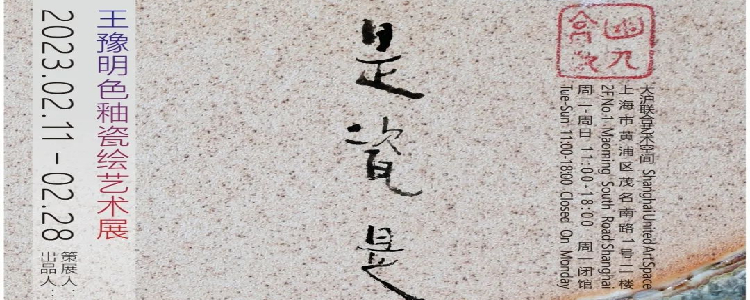 王豫明色釉瓷绘艺术展
2023.02.11 - 02.28
策展人:
出品人:
是瓷是
Shanghai United Art Space
上海市黄浦区茂名南路1号二楼
2F,No.1 Maoming South Road Shanghai
周二-周日 11:00-18:00 周一闭馆
Tue-Sun 11:00-18:00 Closed On Monday